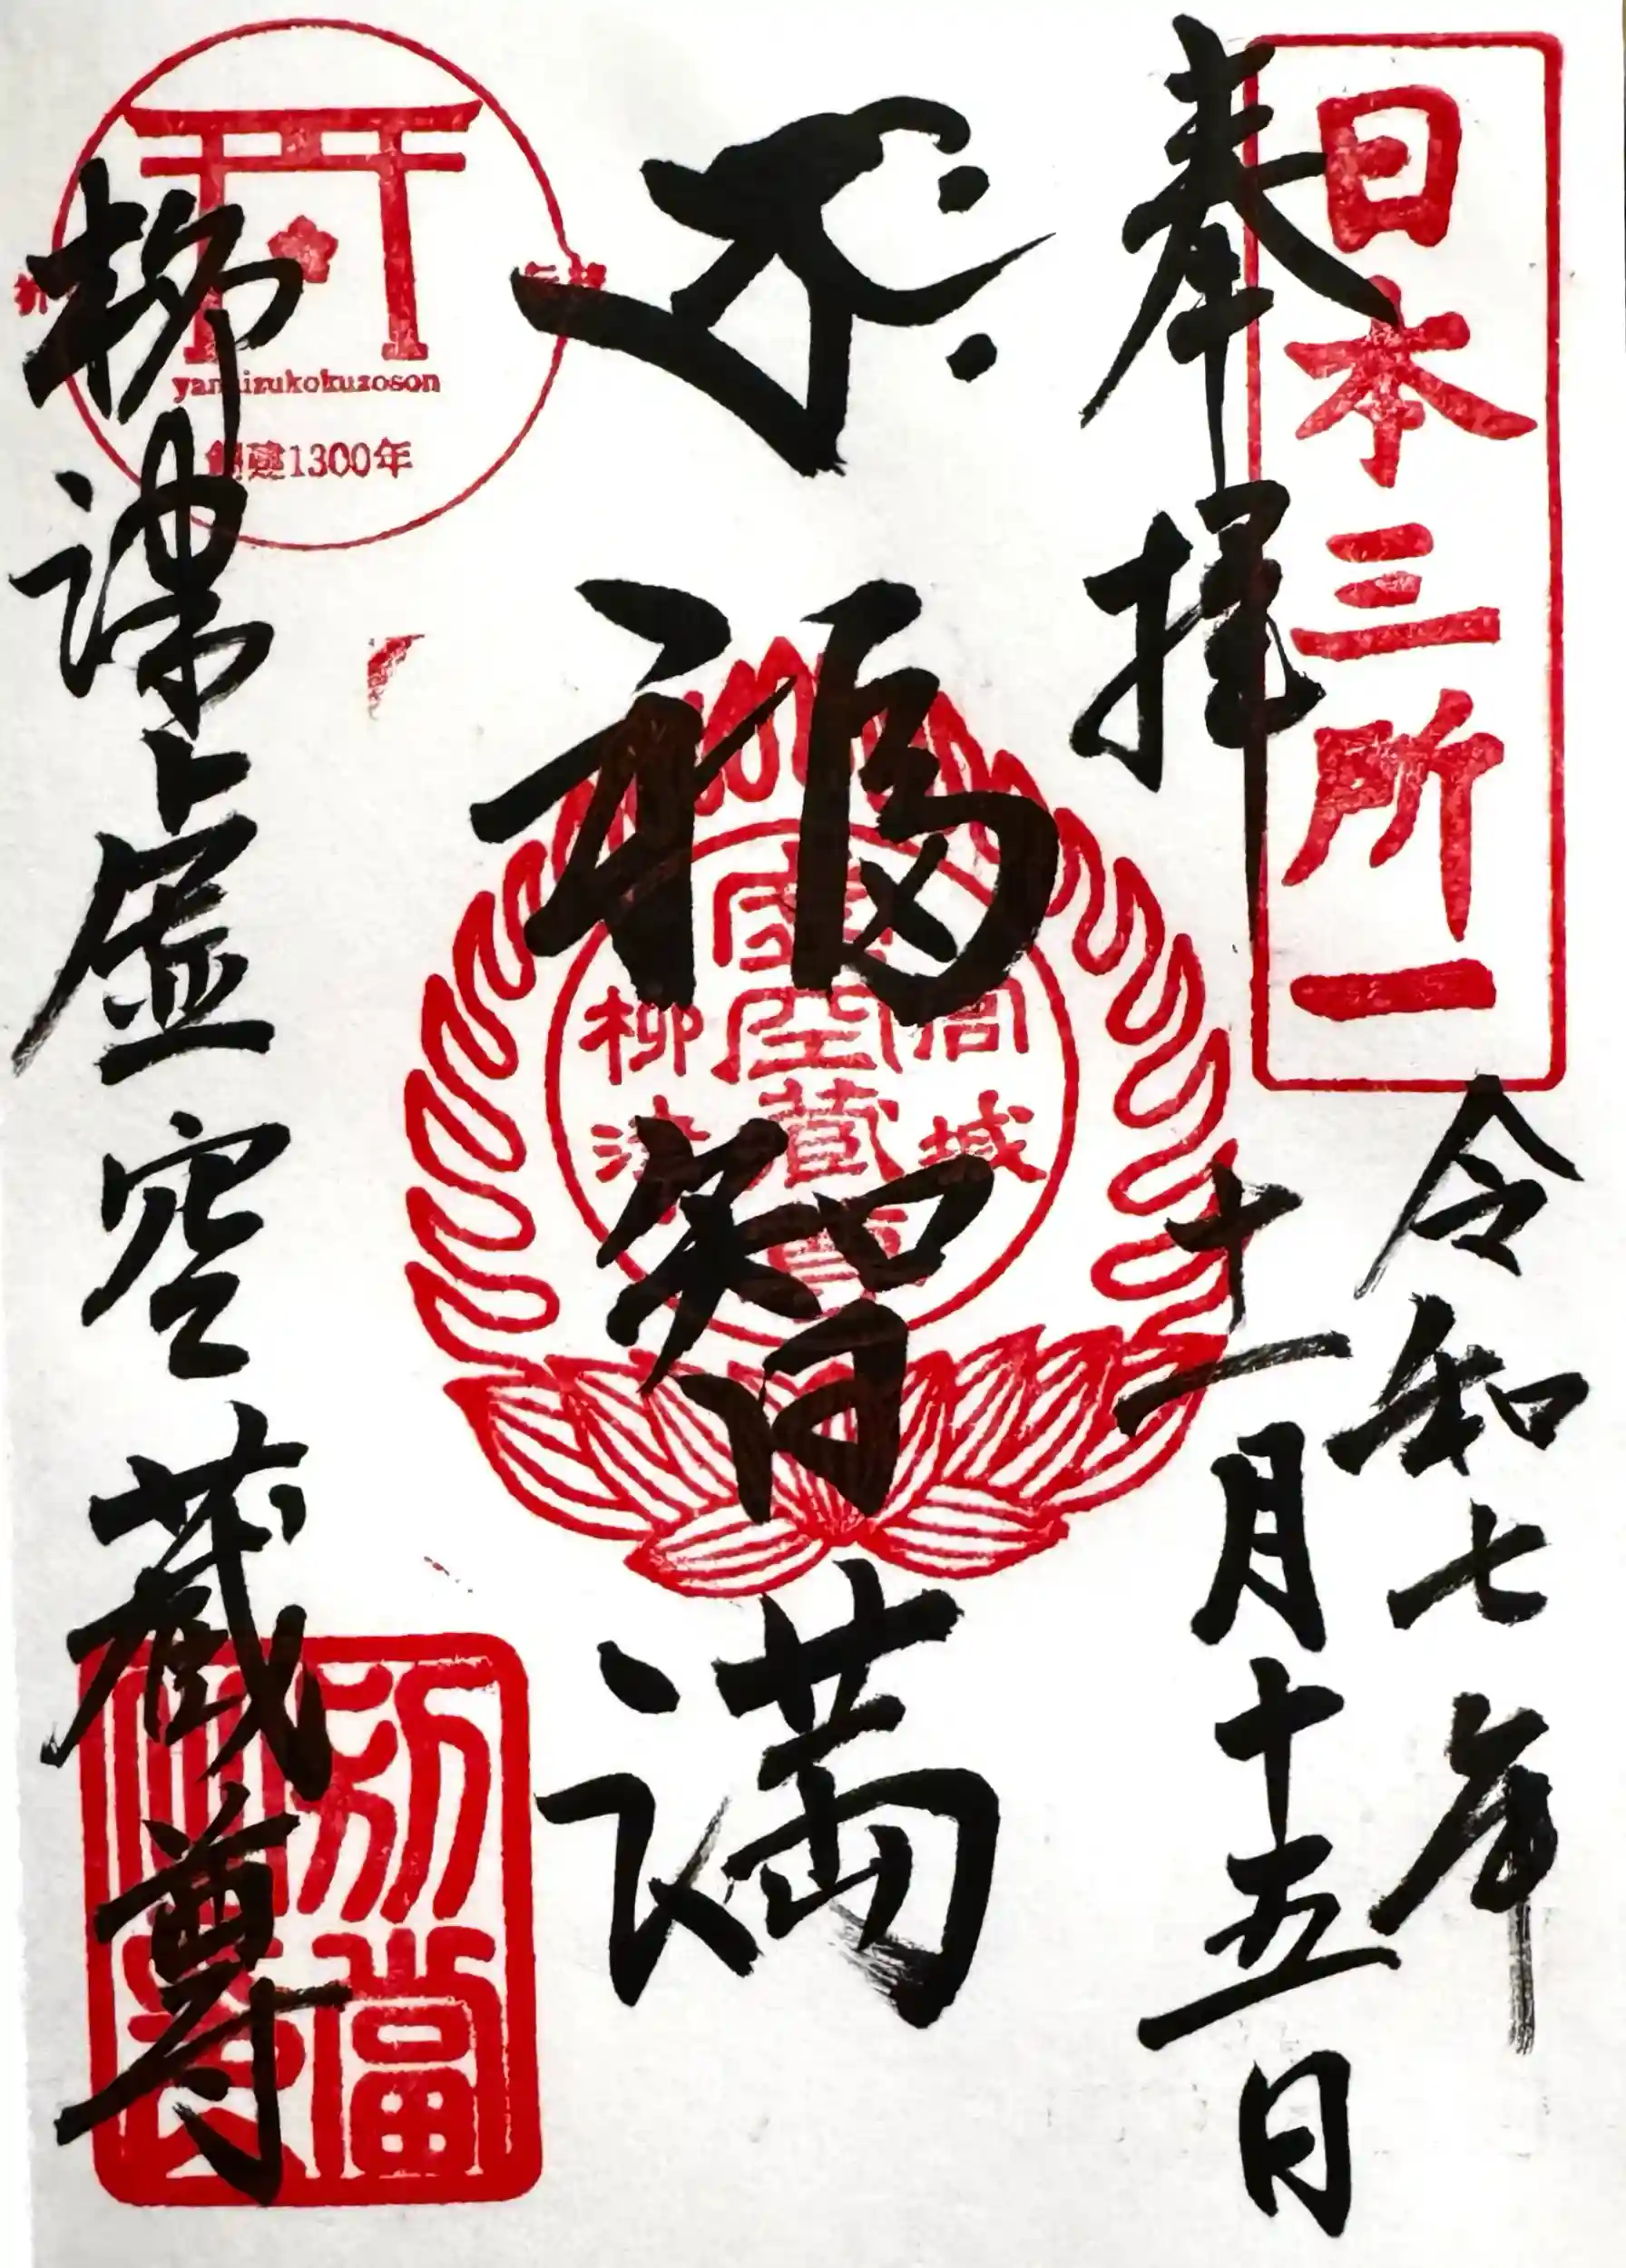 日本三所一
奉拝
令和七年
十一月十五日
福智満
虚空蔵尊
柳津
岩城
yanaizukokuzoson
創建1300年
柳津虚空蔵尊
別當